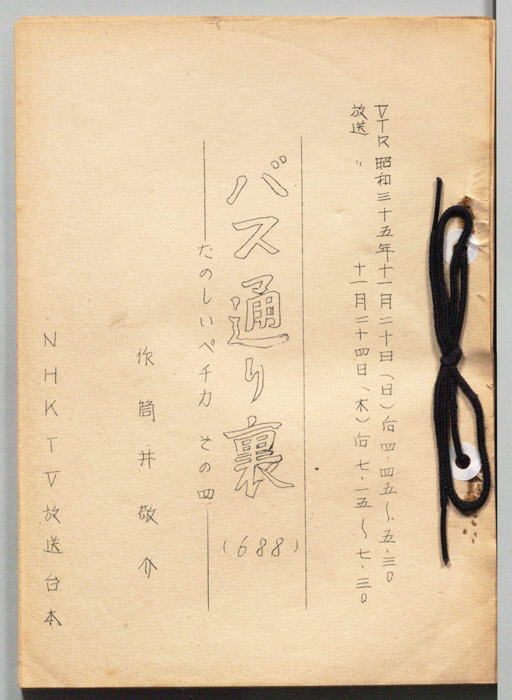 VTR 昭和三十五年十一月二十日(日)后四.四五～五.三〇
放送 〃 十一月二十四日(木)后七.一五～七.三〇
バス通り裏(688)
たのしいペチカ その四
作 筒井敬介
NHKTV放送台本